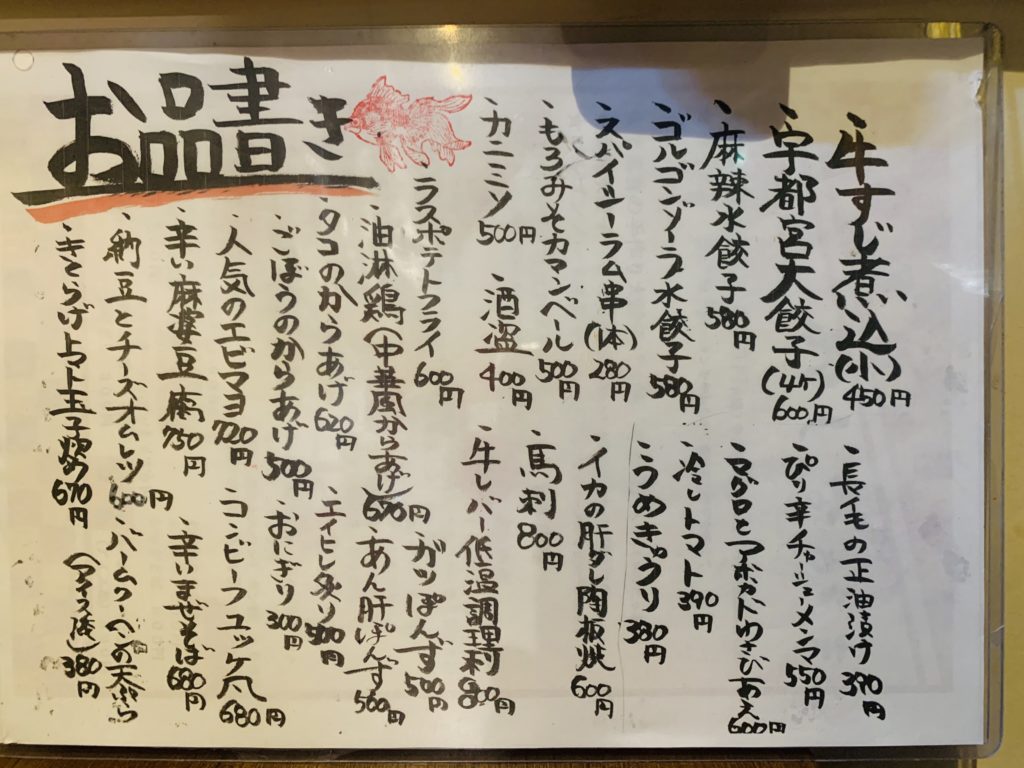 お品書き
牛すじ煮込(小) 450円
宇都宮大餃子(4ケ) 600円
麻辣水餃子 580円
ゴルゴンゾーラ水餃子 580円
スパイシーラム串(1本) 280円
もろみそカマンベール 500円
カニミソ 500円
酒盗 400円
ラスポテトフライ 600円
油淋鶏(中華風からあげ) 670円
タコのからあげ 620円
ごぼうのからあげ 500円
人気のエビマヨ 720円
辛い麻婆豆腐 750円
納豆とチーズオムレツ 600円
きくらげトマト玉子炒め 670円
長イモの正油漬け 390円
ぴり辛チャーシューメンマ 550円
マグロとアボカドわさびあえ 600円
冷しトマト 390円
うめきゅうり 380円
イカの肝ダレ陶板焼 600円
馬刺 800円
牛レバー低温調理刺 800円
ガツぽんず 500円
あん肝ぽんず 560円
エイヒレ炙り 500円
おにぎり 300円
コンビーフユッケ風 680円
辛いまぜそば 680円
バームクーヘンの天ぷら
(アイス添) 380円